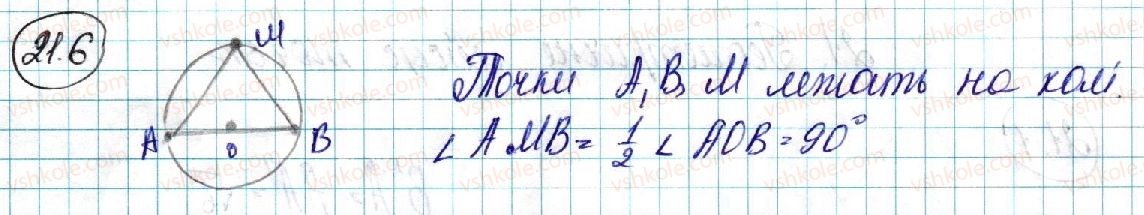 21.6
M
A
O
B
Точки A, B, M лежать на кол.
∠AMB = 1/2 ∠AOB = 90°
vshkole.com